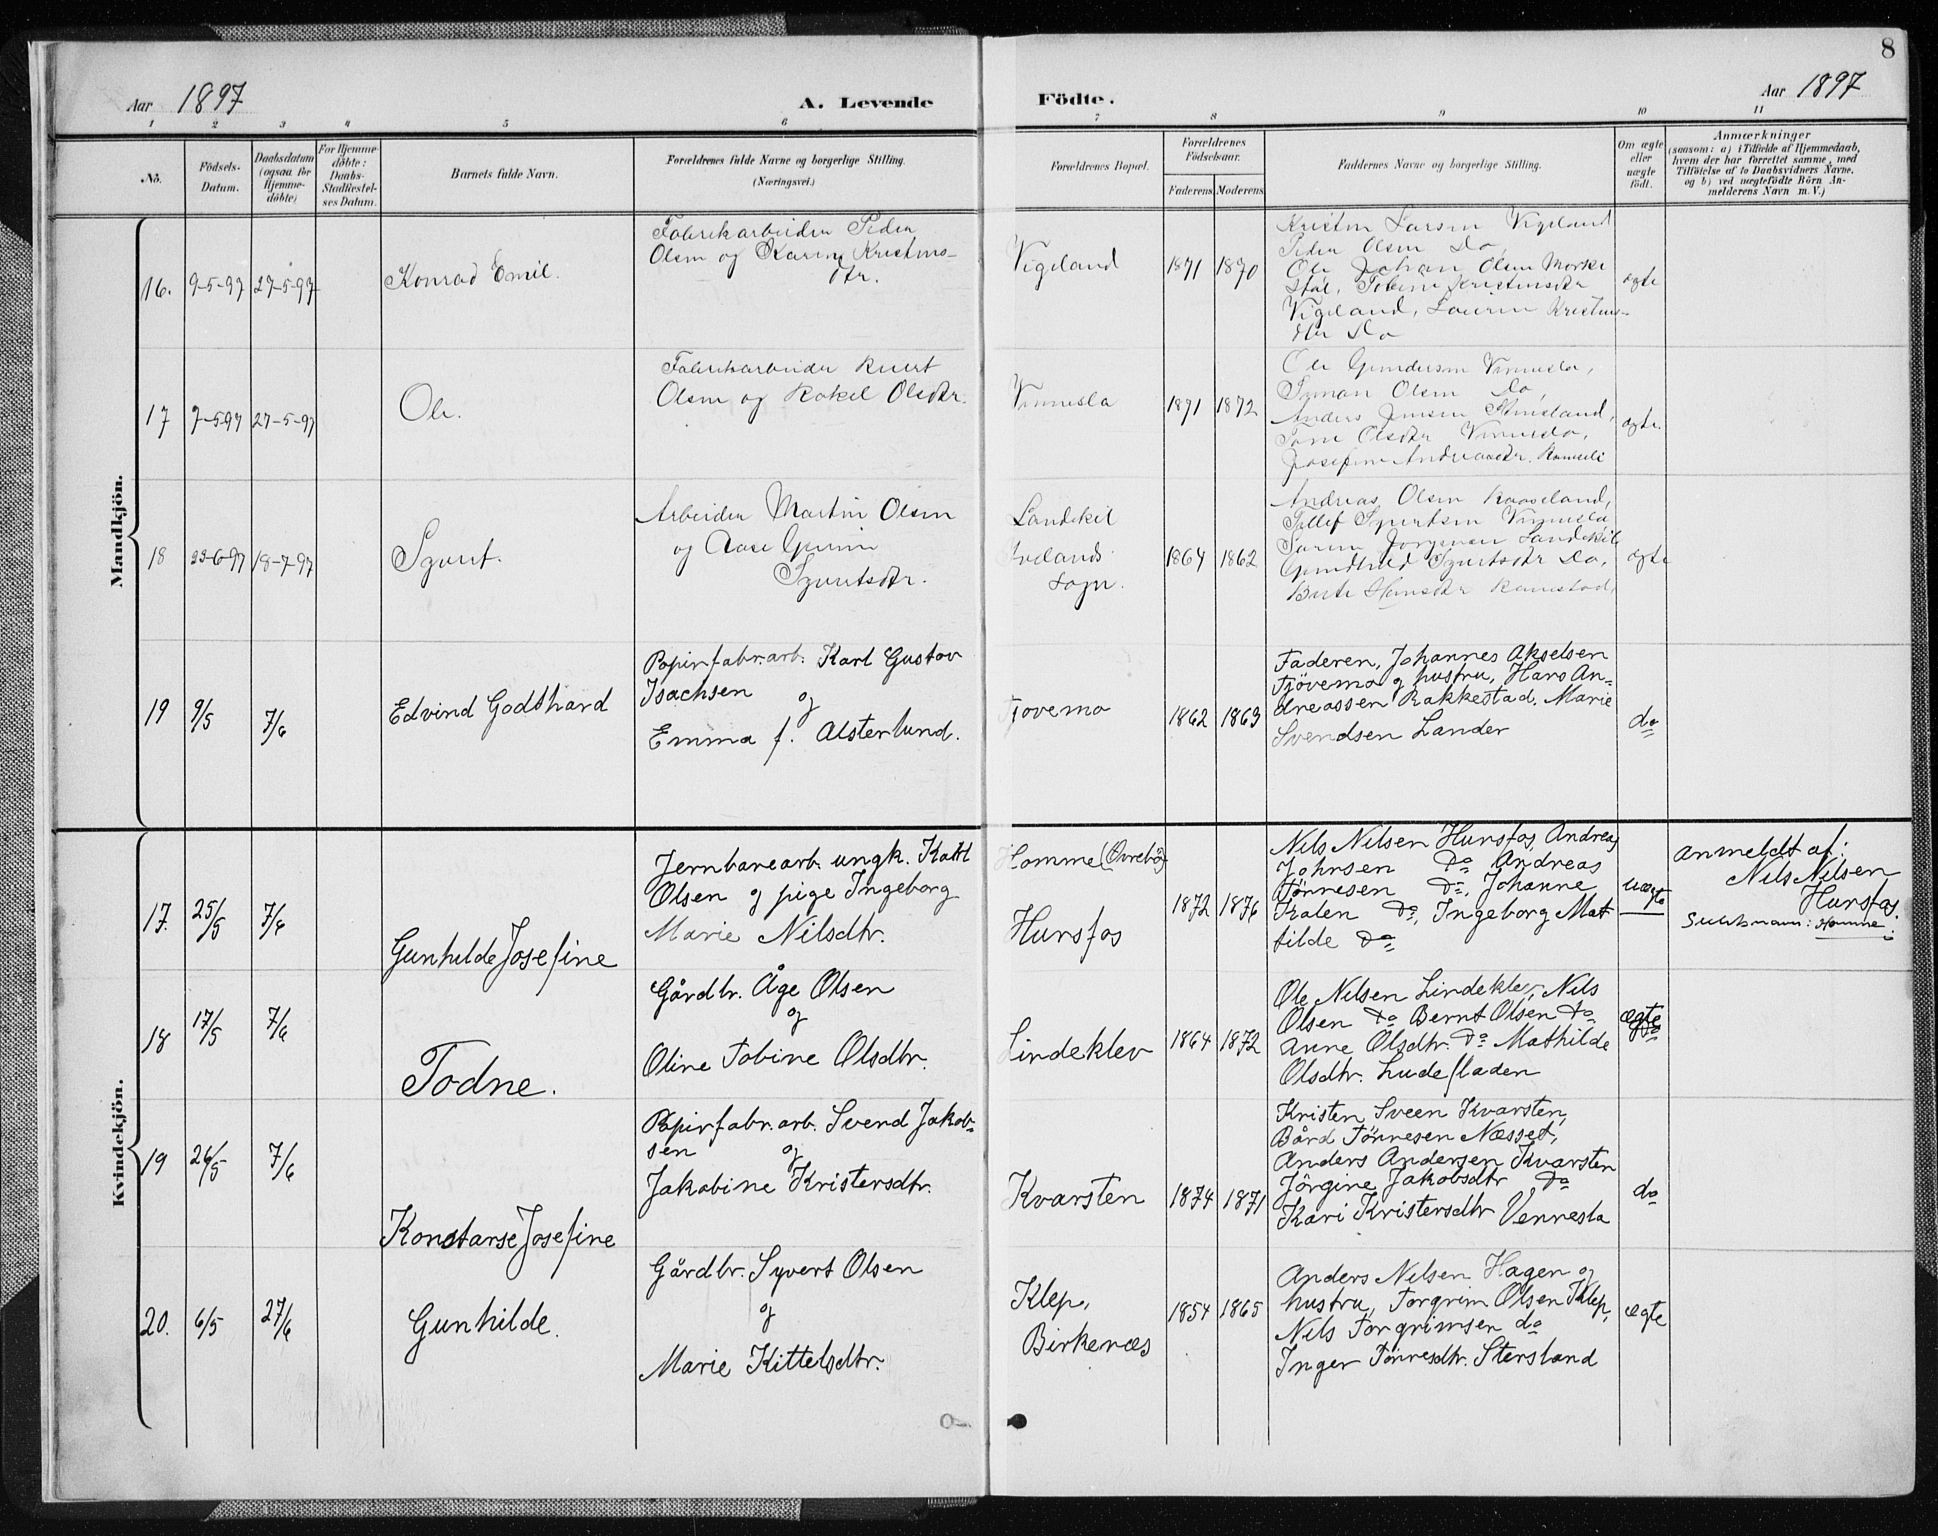 8
Aar 1897
A. Levende
Födte.
Aar 1897
1 2 3 4 5 6 7 8 9 10 11
No.
Födsels-
Datum.
Daabsdatum
(ogsaa for
Hjemme-
döbte)
For Hjemme-
döbte:
Daabs-
Stadfæstel-
ses Datum.
Barnets fulde Navn.
Forældrenes fulde Navne og borgerlige Stilling.
(Næringsvei.)
Forældrenes Bopæl.
Forældrenes
Födselsaar.
Faderens Moderens
Faddernes Navne og borgerlige Stilling.
Om ægte
eller
uægte
födt.
Anmærkninger
(saasom: a) i Tilfælde af Hjemmedaab,
hvem der har forrettet samme, med
Tilföielse af to Daabsvidners Navne,
og b) ved uægtefödte Börn An-
melderens Navn m. V.)
Mandkjön.
16. 9-5-97 27-5-97
Konrad Emil.
Fabrikarbeider Peder
Olsen og Karine Kristens-
dtr.
Vigeland
1871 1870
Kristen Larsen Vigeland
Peder Olsen Do,
Ole Johan Olsen
Kristensdtr
Vigeland, Kristens-
dtr Do
ægte
17 7-5-97 27-5-97
Ole.
Fabrikarbeider
Olsen og Rakel Olsdtr.
Vennesla
1871 1872
Ole Gundersen Vennesla,
Olsen Do,
Anders Jensen
Olsdtr Vennesla,
Josefine Andreasdtr.
ægte.
18 23-6-97 18-7-97
Syvert.
Arbeider Martin Olsen
og Aase
Syvertsdtr.
Landekil
Ivelands
sogn.
1864 1862
Andreas Olsen
Tellef Syvertsen Vennesla
Jörgensen Landekil
Syvertsdtr Do,
Hansdtr
ægte
19 9/5 7/6
Edvind Godthard
Papirfabr.arb. Karl Gustav
Isachsen
og
Emma f. Alsterlund.
Fjövemo
1862 1863
Faderen, Johannes Akselsen
Fjövemo og hustru, Hans An-
dreassen Rakkestad. Marie
Svendsen Lander
do
Kvindekjön.
17. 25/5 7/6
Gunhilde Josefine
Jernbanearb. ungk. Karl
Olsen og pige Ingeborg
Marie Nilsdtr.
Homme (Övrebö)
Hunsfos
1872 1876
Nils Nilsen Hunsfos, Andreas
Johnsen do Andreas
Tönnesen do, Johanne
do, Ingeborg Mat
tilde do
uægte
anmeldt af:
Nils Nilsen
Hunsfos.
Homme.
18 17/5 7/6
Todne.
Gårdbr. Åge Olsen
og
Oline Tobine Olsdtr.
Lindeklev
1864 1872
Ole Nilsen Lindeklev, Nils
Olsen do Bernt Olsen do
Anne Olsdtr. do Mathilde
Olsdtr. Ludefladen
ægte
19 26/5 7/6
Konstanse Josefine
Papirfabr.arb. Svend Jakob-
sen og
Jakobine Kristensdtr.
Kvarsten
1874 1871
Kristen Sveen Kvarsten,
Bård Tönnesen Næsset,
Anders Andersen Kvarsten
Jörgine Jakobsdtr do
Kari Kristensdtr Vennesla
do
20. 6/5 27/6
Gunhilde.
Gårdbr. Syvert Olsen
og
Marie Kittelsdtr.
Klep,
Birkenæs
1854 1865
Anders Nilsen Hagen og
hustru, Torgrim Olsen Klep,
Nils Torgrimsen do
Inger Tönnesdtr. Stersland
ægte